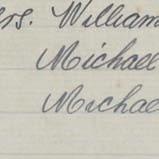 rs. William
Michael
Michae